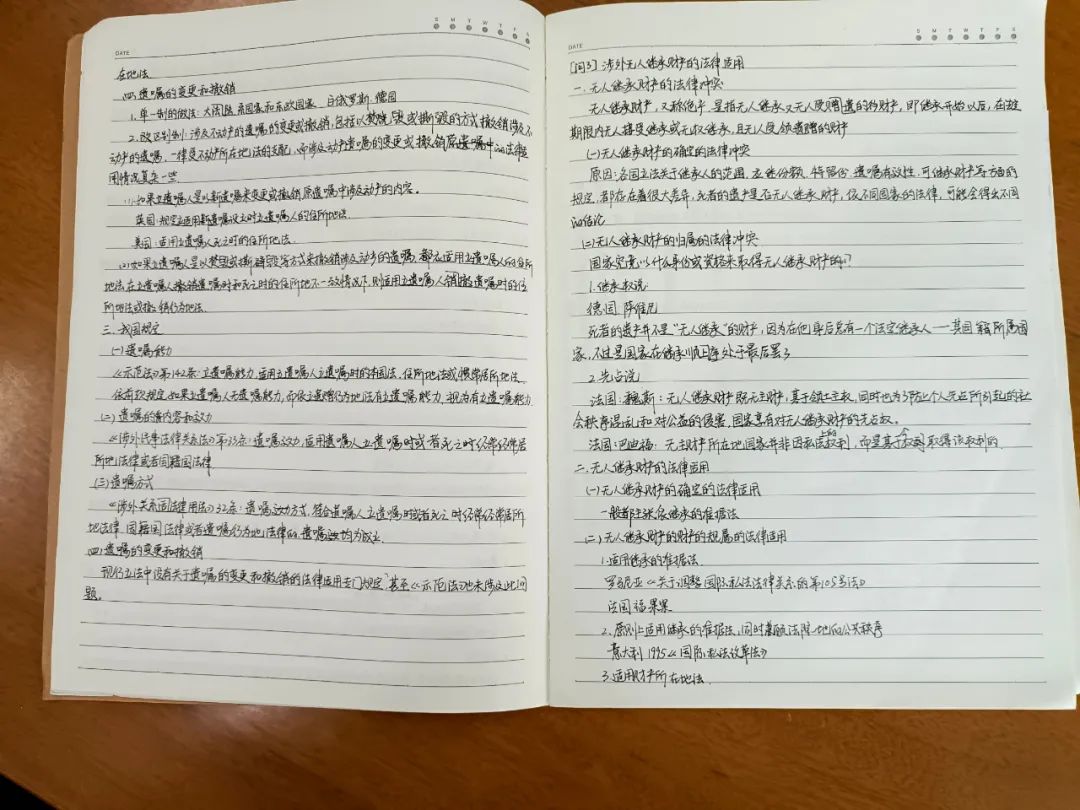 DATE
S M T W T F S
在地法
四、遗嘱的变更和撤销
1.单一制的做法：大陆法系国家和东欧国家 白俄罗斯 德国
2.区别制：涉及不动产的遗嘱的变更或撤销，包括以焚烧、毁或撕毁的方式撤销涉及不
动产的遗嘱，一律受不动产所在地法的支配，而涉及动产遗嘱的变更或撤销原遗嘱中的法律适
用情况复杂一些
(1)如果立遗嘱人是以新遗嘱来变更或撤销原遗嘱中涉及动产的内容。
英国：规定应适用新遗嘱设立时立遗嘱人的住所地法
美国：适用立遗嘱人死亡时的住所地法.
(2)如果立遗嘱人是以焚毁或撕碎毁等方式来撤销涉及动产的遗嘱，都应适用立遗嘱人的住所
地法在立遗嘱人撤销遗嘱时和死亡时的住所地不一致情况下，则适用立遗嘱人销撤遗嘱时的住
所地法或撤销行为地法.
三、我国规定
(一)遗嘱能力
《示范法》第142条：立遗嘱能力，适用立遗嘱人立遗嘱时的本国法、住所地法或惯常居所地法.
依前款规定如果立遗嘱人无遗嘱能力，而依立遗嘱行为地法有立遗嘱能力，视为有立遗嘱能力
(二)遗嘱的内容和效力
《涉外民事法律关系法》第33条：遗嘱效力，应用遗嘱人立遗嘱时或者死亡时经常居
所地法律或者国籍国法律
(三)遗嘱方式
《涉外关系适法律用法》32条：遗嘱方式，符合遗嘱人立遗嘱时或者死亡时经常居所
地法律、国籍国法律或者遗嘱行为地法律的，遗嘱均为成立.
四)遗嘱的变更和撤销
现行立法中没有关于遗嘱的变更和撤销的法律适用专门规定，甚至《示范法》也未涉及此问
题。
DATE
S M T W T F S
[问3] 涉外无人继承财产的法律适用
一、无人继承财产的法律冲突
无人继承财产，又称绝产，是指无人继承又无人受赠遗的移财产，即继承开始以后，在法定
期限内无人接受继承或无权继承，且无人受领遗赠的财产
(一)无人继承财产的确定的法律冲突
原因：各国立法关于继承人的范围、应继份额、特留份、遗嘱有效性、可继承财产等方面的
规定，都存在着很大差异，死者的遗产是否无人继承财产，依不同国家的法律，可能会得出不同
的结论
(二)无人继承财产的归属的法律冲突
国家究竟以什么身份或资格来取得无人继承财产的？
1.继承权说
德国 萨维尼
死者的遗产并不是“无人继承”的财产，因为在他身后总有一个法定继承人——其国籍所属国
家，不过是国家在继承顺序上处于最后罢了
2.先占说
法国：魏斯：无人继承财产既无主财产，基于领土主权，同时也为了防止个人先占所引起的社
会秩序混乱和对公益的侵害，国家享有对无人继承财产的先占权。
法国：巴迪福：无主财产所在地国家并非因私法上的权利，而是基于公权利取得该权利的
二、无人继承财产的法律适用
(一)无人继承财产的确定的法律适用
一般都主张依继承的准据法
(二)无人继承财产的财产的归属的法律适用
1.适用继承的准据法
罗马尼亚《关于调整国际私法法律关系的第105号法》
法国 福果案
2.原则上适用继承的准据法，同时兼顾法院地的公共秩序
意大利 1995《国际私法改革法》
3.适用财产所在地法.